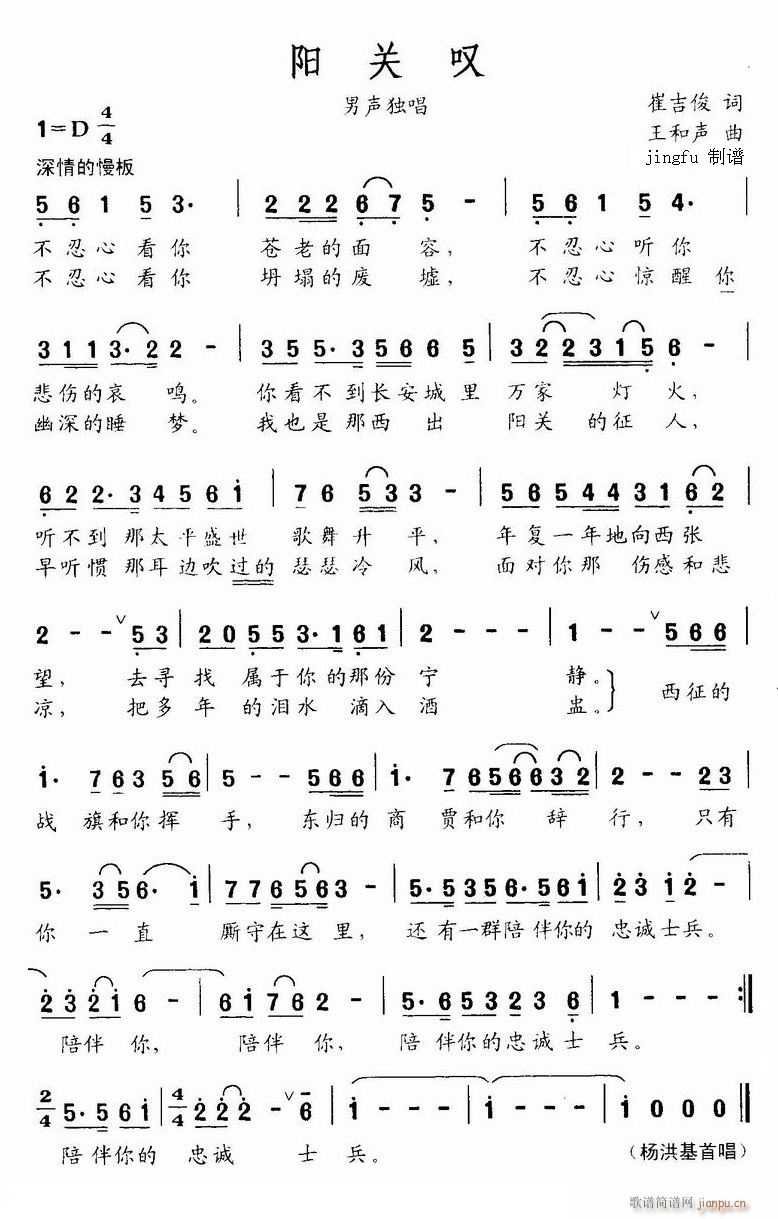 阳关叹
男声独唱
崔吉俊 词
1=D 4/4
王和声 曲
jingfu 制谱
深情的慢板
5 6 1 5 3· | 2 2 2 2 6 7 5 - | 5 6 1 5 4· |
不忍心看你 苍老的面 容， 不忍心听你
不忍心看你 坍塌的废 墟， 不忍心惊醒 你
3 1 1 3· 2 2 - | 3 5 5· 3 5 6 6 6 5 | 3 2 2 3 1 5 6 - |
悲伤的哀 鸣。 你看不到长安城里 万家 灯 火，
幽深的睡 梦。 我也是那西出 阳关 的征 人，
6 2 2· 3 4 5 6 i | 7 6 5 3 3 - | 5 6 5 4 4 3 1 6 2 |
听不到 那太平盛世 歌舞升 平， 年复一年地向西张
早听惯 那耳边吹过的 瑟瑟冷 风， 面对你那 伤感和悲
2 - - ∨ 5 3 | 2 0 5 5 3· 1 6 1 | 2 - - - | 1 - ∨ 5 6 6 |
望， 去寻找 属于你的那份宁 静。 西征的
凉， 把多年 的泪水 滴入酒 盅。
i· 7 6 3 5 6 | 5 - - 5 6 6 | i· 7 6 5 6 6 3 2 | 2 - - 2 3 |
战 旗和你挥 手， 东归的商 贾和你 辞 行， 只有
5· 3 5 6· i | 7 7 6 5 6 3 - | 5· 5 3 5 6· 5 6 i | 2 3 i 2 - |
你 一直 厮守在这里， 还有一群陪伴你的 忠诚士兵。
2 3 2 i 6 - | 6 1 7 6 2 - | 6· 5 6 5 3 2 3 6 | 1 - - - :‖
陪伴你， 陪伴 你， 陪 伴你的忠诚士 兵。
2/4 5· 5 6 i | 4/4 2 2 2 - ∨ 6 | i - - - | i - - - | i 0 0 0 ‖
陪伴你的 忠诚 士 兵。
（杨洪基首唱）
歌谱简谱网
jianpu.cn